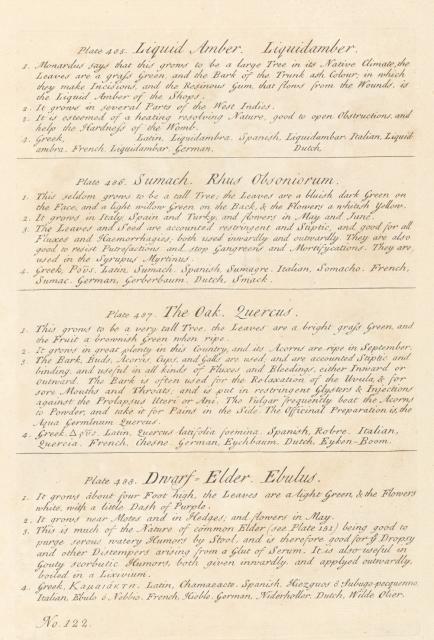 Plate 485. Liquid Amber. Liquidamber.
1. Monardus says that this grows to be a large Tree in its Native Climate, the
Leaves are a grass Green, and the Bark of the Trunk ash Colour; in which
they make Incisions, and the Resinous Gum, that flows from the Wounds, is
the Liquid Amber of the Shops.
2. It grows in several Parts of the West Indies.
3. It is esteemed of a heating resolving Nature, good to open Obstructions, and
help the Hardness of the Womb.
4. Greek, Latin, Liquidambra. Spanish, Liquidambar. Italian, Liquid
ambra. French, Liquidambar. German, Dutch,
Plate 486. Sumach. Rhus Obsoniorum.
1. This seldom grows to be a tall Tree; the Leaves are a bluish dark Green on
the Face, and a light willow Green on the Back, & the Flowers a whitish Yellow.
2. It grows in Italy, Spain and Turky, and flowers in May and June.
3. The Leaves and Seed are accounted restringent and Stiptic, and good for all
Fluxes and Haemorrhagies, both used inwardly and outwardly. They are also
good to resist Putrefactions and stop Gangreens and Mortifycations. They are
used in the Syrupus Myrtinus.
4. Greek, Ροῦς. Latin, Sumach. Spanish, Sumagre. Italian, Somacho. French,
Sumac. German, Gerberbaum. Dutch, Smack.
Plate 487. The Oak. Quercus.
1. This grows to be a very tall Tree, the Leaves are a bright grass Green, and
the Fruit a brownish Green when ripe.
2. It grows in great plenty in this Country, and its Acorns are ripe in September.
3. The Bark, Buds, Acorns, Cups, and Galls are used, and are accounted Stiptic and
binding, and useful in all kinds of Fluxes and Bleedings, either Inward or
Outward. The Bark is often used for the Relaxation of the Uvula, & for
sore Mouths and Throats, and is put in restringent Glysters & Injections
against the Prolapsus Uteri or Ani. The Vulgar frequently beat the Acorns
to Powder, and take it for Pains in the Side. The Officinal Preparation is, the
Aqua Germinum Quercus.
4. Greek, Δρῦς. Latin, Quercus latifolia foemina. Spanish, Robre. Italian,
Quercia. French, Chesne. German, Eychbaum. Dutch, Eyken-Boom.
Plate 488. Dwarf-Elder. Ebulus.
1. It grows about four Foot high, the Leaves are a light Green, & the Flowers
white, with a little Dash of Purple.
2. It grows near Motes and in Hedges; and flowers in May.
3. This is much of the Nature of common Elder (see Plate 151) being good to
purge serous watery Humors by Stool, and is therefore good for ye Dropsy
and other Distempers arising from a Glut of Serum. It is also useful in
Gouty scorbutic Humors, both given inwardly and applyed outwardly,
boiled in a Lixivium.
4. Greek, Καμαιάκτη. Latin, Chamaeacte. Spanish, Hiezguos ó Subugo-pecquenno.
Italian, Ebulo ó Nebbio. French, Hieble. German, Niderholler. Dutch, Wilde Olier.
No. 122.